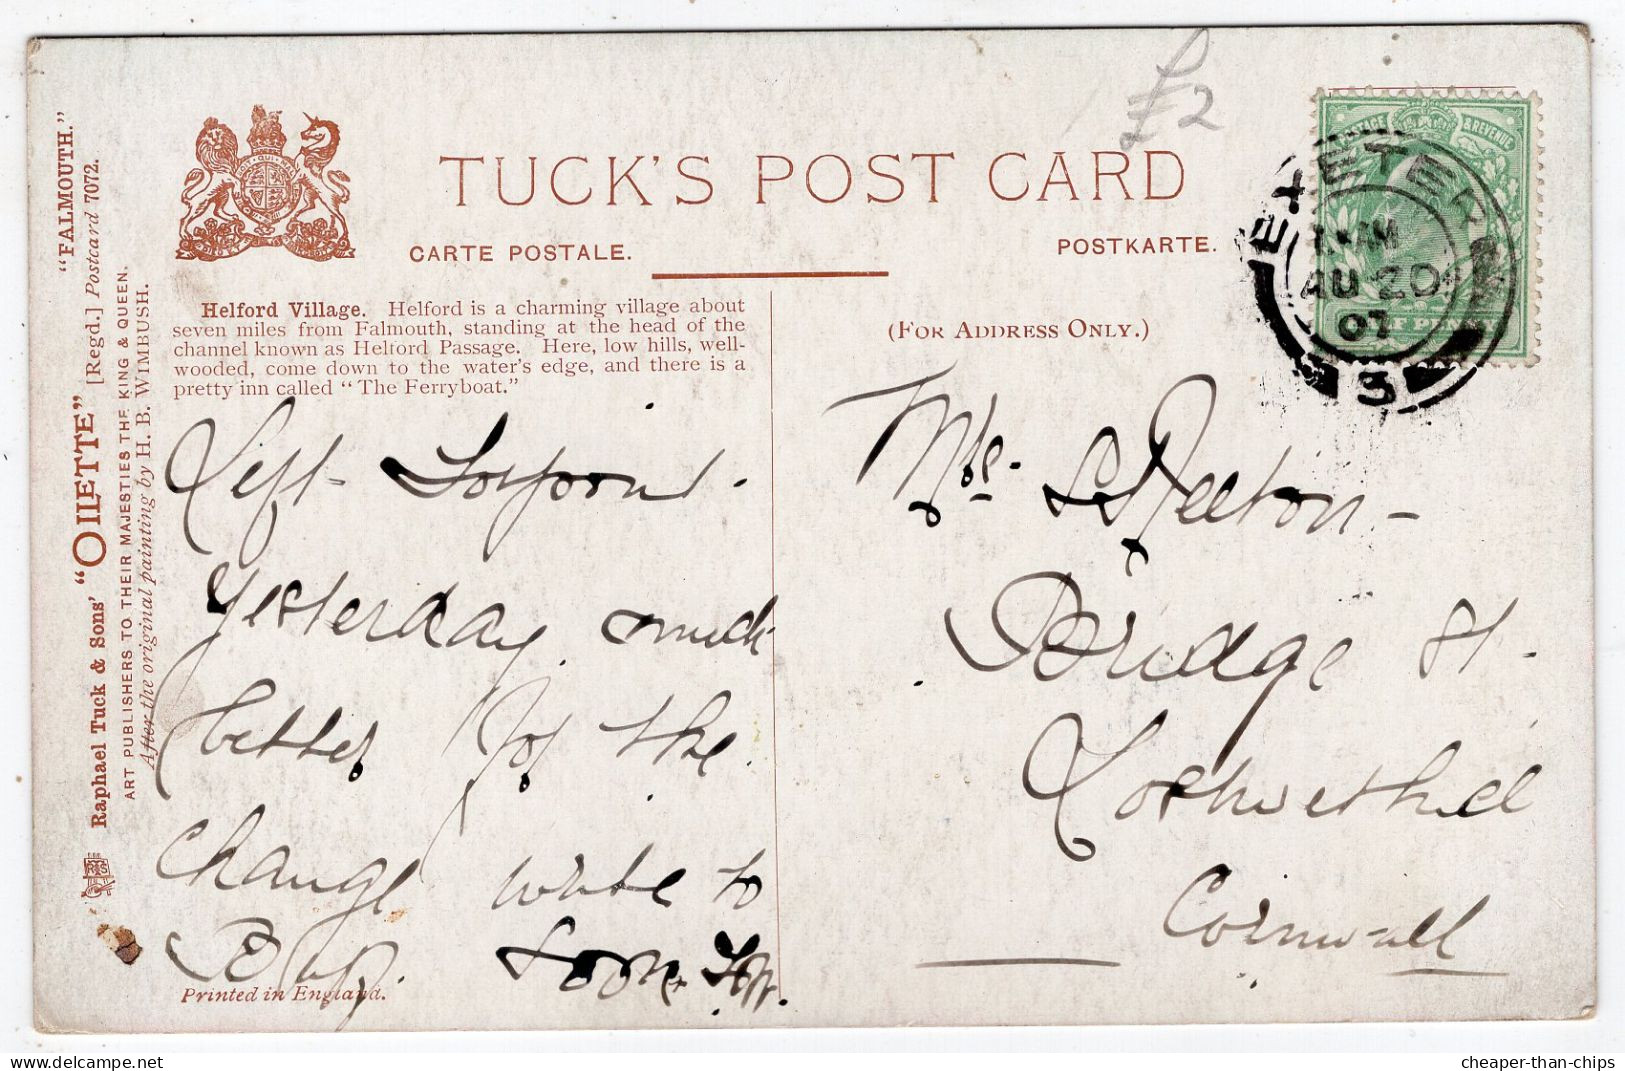 £2
TUCK'S POST CARD
CARTE POSTALE.
POSTKARTE.
POSTAGE & REVENUE
HALF PENNY
EXETER
AM
AU 20
07
S
"FALMOUTH."
Raphael Tuck & Sons' "OILETTE" [Regd.] Postcard 7072.
ART PUBLISHERS TO THEIR MAJESTIES THE KING & QUEEN.
After the original painting by H. B. WIMBUSH.
Helford Village. Helford is a charming village about
seven miles from Falmouth, standing at the head of the
channel known as Helford Passage. Here, low hills, well-
wooded, come down to the water's edge, and there is a
pretty inn called "The Ferryboat."
(FOR ADDRESS ONLY.)
Left Torpoint.
yesterday much
better for the
change write to
soon
Printed in England.
Mrs.
Bridge St.
Lostwithiel
Cornwall
cheaper-than-chips